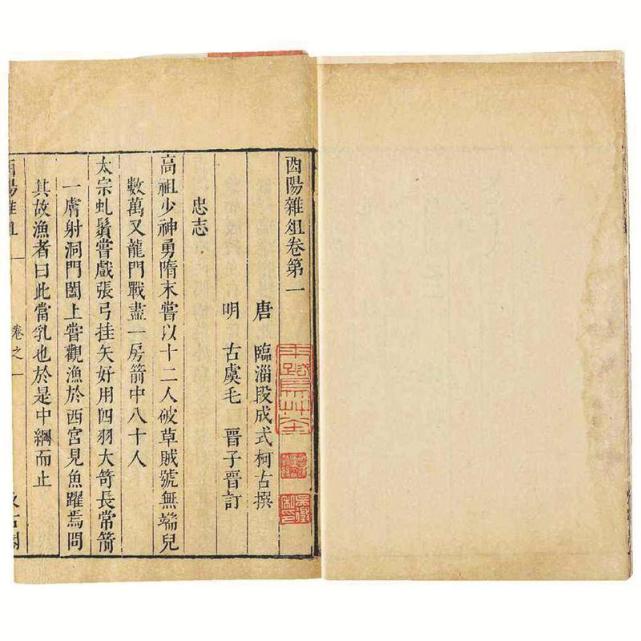 酉陽雜俎卷第一
唐　臨淄段成式柯古撰
明　古虞毛　晉子晉訂
忠志
高祖少神勇隋末嘗以十二人破草賊號無端兒
數萬又龍門戰盡一房箭中八十人
太宗虬鬚嘗戲張弓挂矢好用四羽大箭長常箭
一膚射洞門闔上嘗觀漁於西宮見魚躍焉問
其故漁者曰此當乳也於是中網而止
酉陽雜俎
卷之一